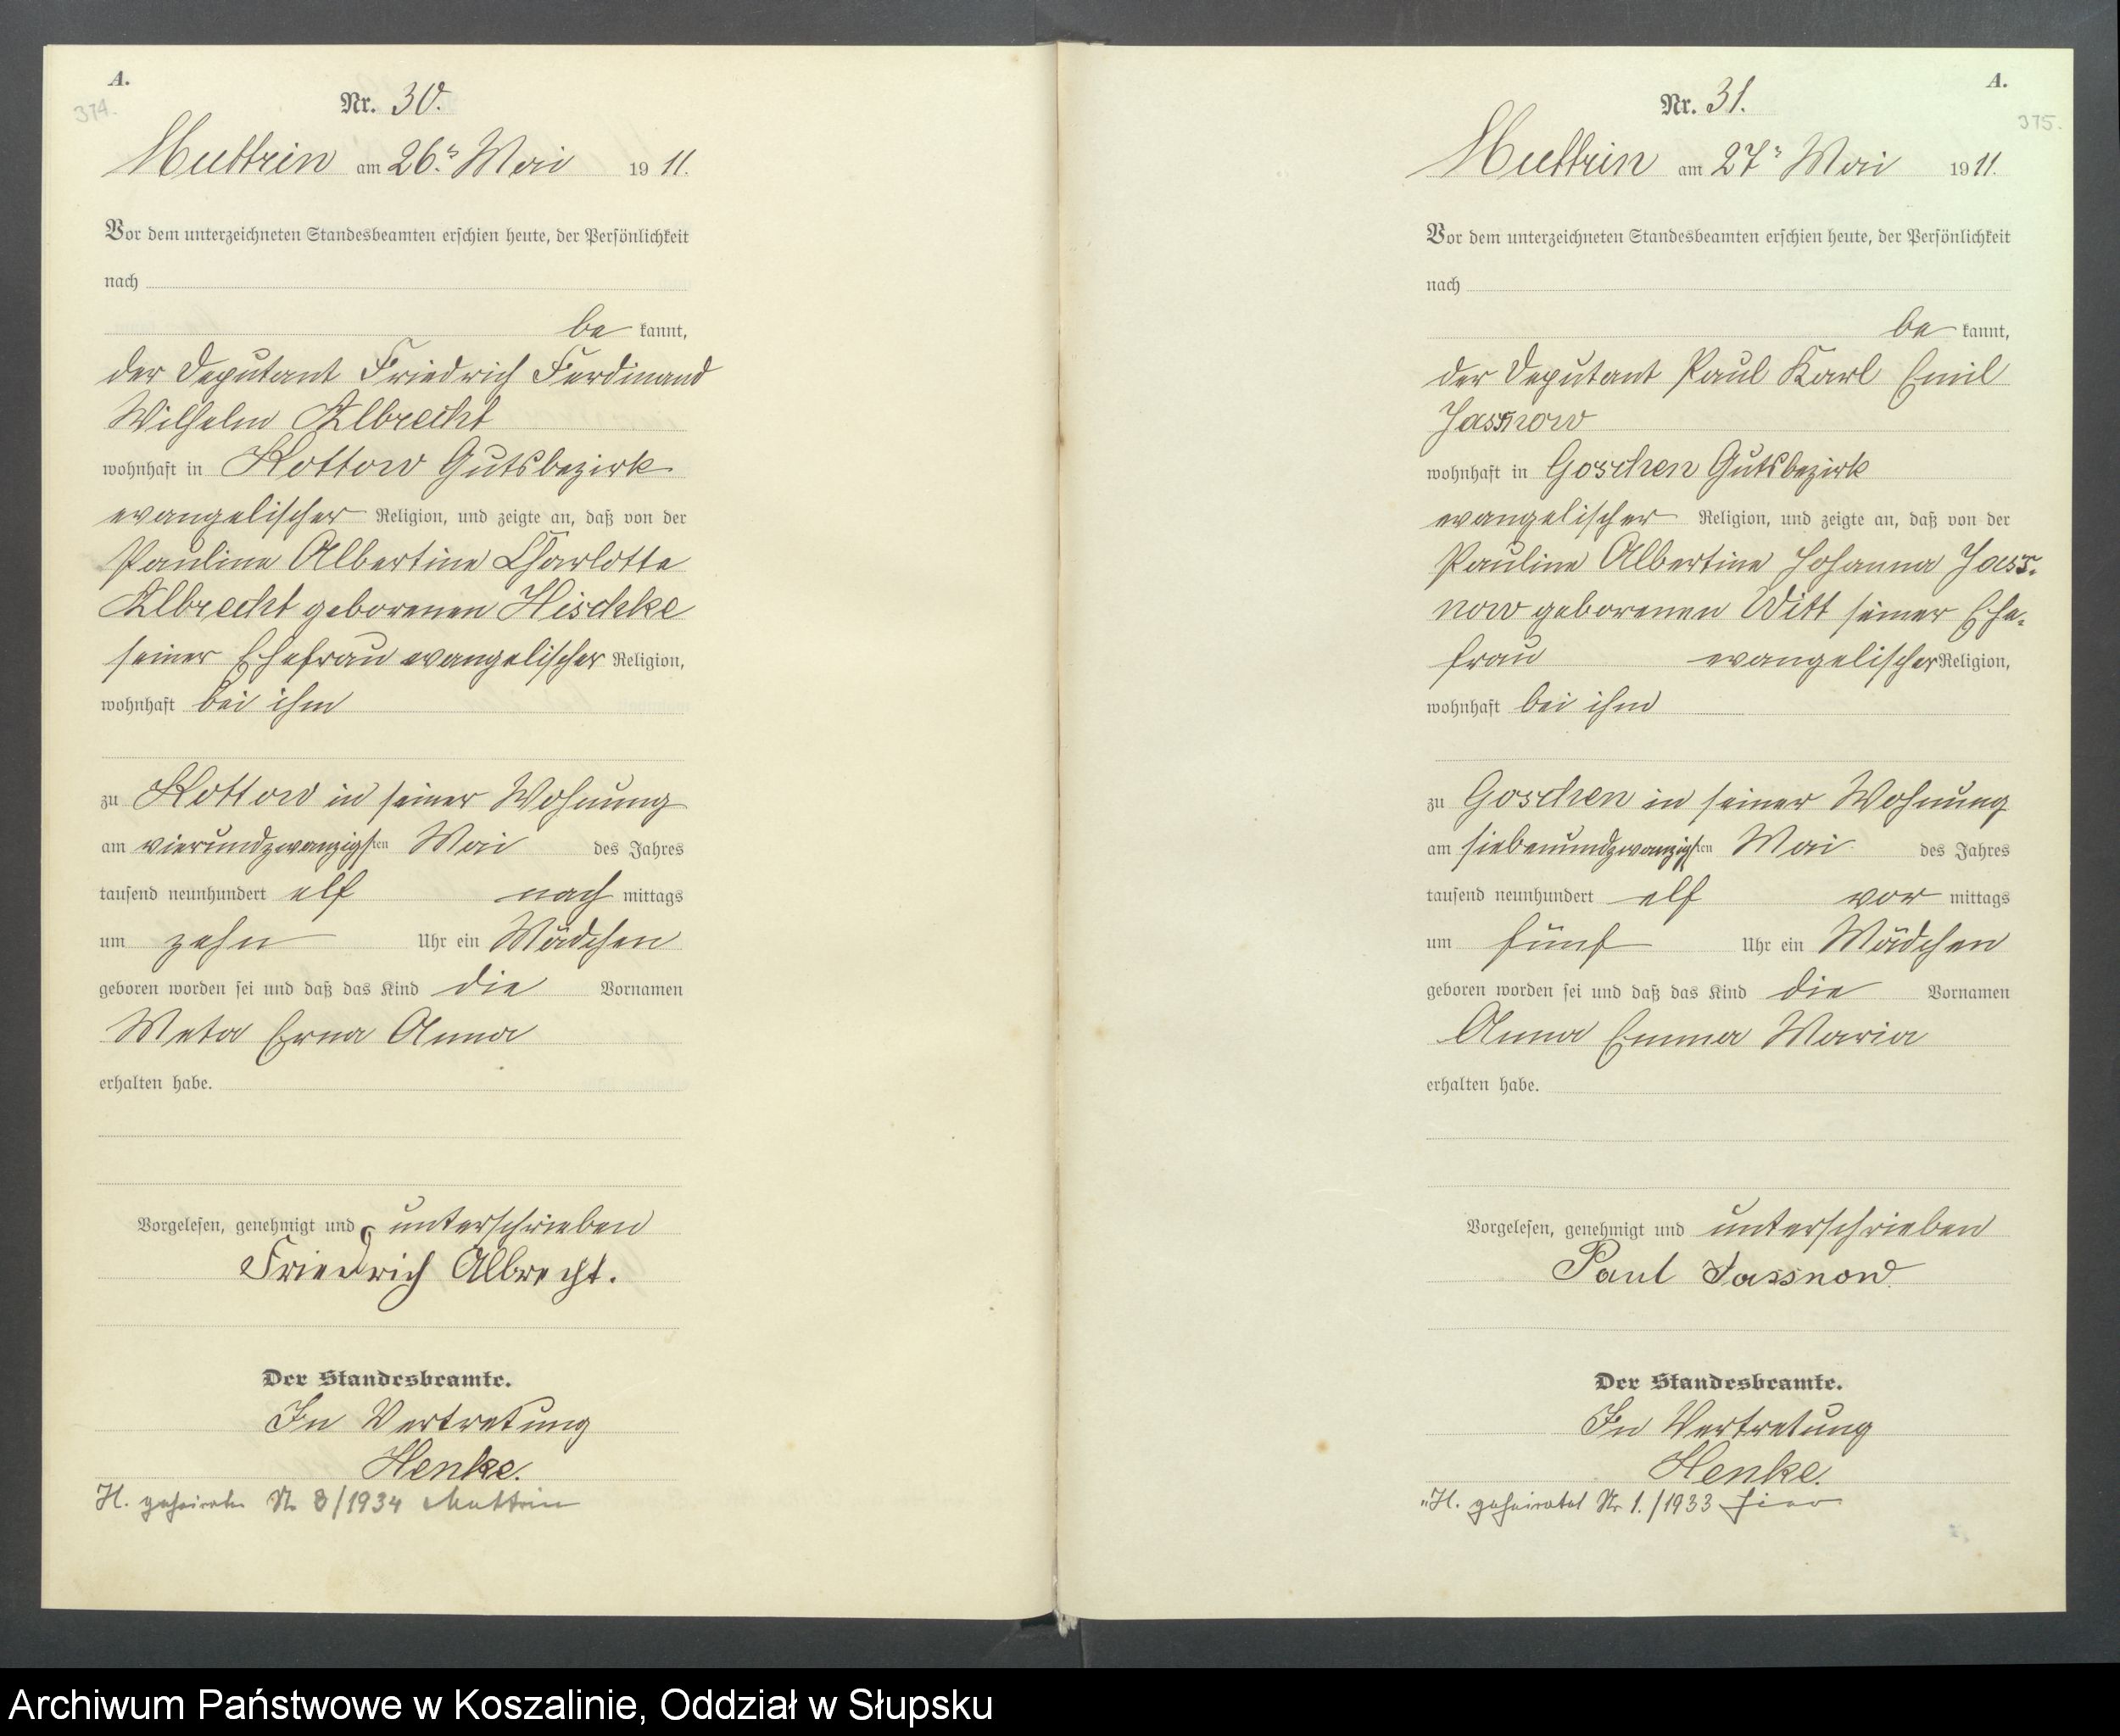 A.
374.
Nr. 30.
Muttrin am 26ten Mai 1911.
Vor dem unterzeichneten Standesbeamten erschien heute, der Persönlichkeit
nach
be kannt,
der Deputant Friedrich Ferdinand
Wilhelm Albrecht
wohnhaft in Kottow Gutsbezirk
evangelischer Religion, und zeigte an, daß von der
Pauline Albertine Charlotte
Albrecht geborenen Hischke
seiner Ehefrau evangelischer Religion,
wohnhaft bei ihm
zu Kottow in seiner Wohnung
am vierundzwanzigsten Mai des Jahres
tausend neunhundert elf nach mittags
um zehn Uhr ein Mädchen
geboren worden sei und daß das Kind die Vornamen
Meta Erna Anna
erhalten habe.
Vorgelesen, genehmigt und unterschrieben
Friedrich Albrecht.
Der Standesbeamte.
In Vertretung
Henke.
H. geheiratet Nr 8/1934 Muttrin
A.
375.
Nr. 31.
Muttrin am 27ten Mai 1911.
Vor dem unterzeichneten Standesbeamten erschien heute, der Persönlichkeit
nach
be kannt,
der Deputant Paul Karl Emil
Jassnow
wohnhaft in Goschen Gutsbezirk
evangelischer Religion, und zeigte an, daß von der
Pauline Albertine Johanna Jass-
now geborenen Witt seiner Ehe-
frau evangelischer Religion,
wohnhaft bei ihm
zu Goschen in seiner Wohnung
am siebenundzwanzigsten Mai des Jahres
tausend neunhundert elf vor mittags
um fünf Uhr ein Mädchen
geboren worden sei und daß das Kind die Vornamen
Anna Emma Maria
erhalten habe.
Vorgelesen, genehmigt und unterschrieben
Paul Jassnow
Der Standesbeamte.
In Vertretung
Henke.
"H. geheiratet Nr 1./1933 hier
Archiwum Państwowe w Koszalinie, Oddział w Słupsku